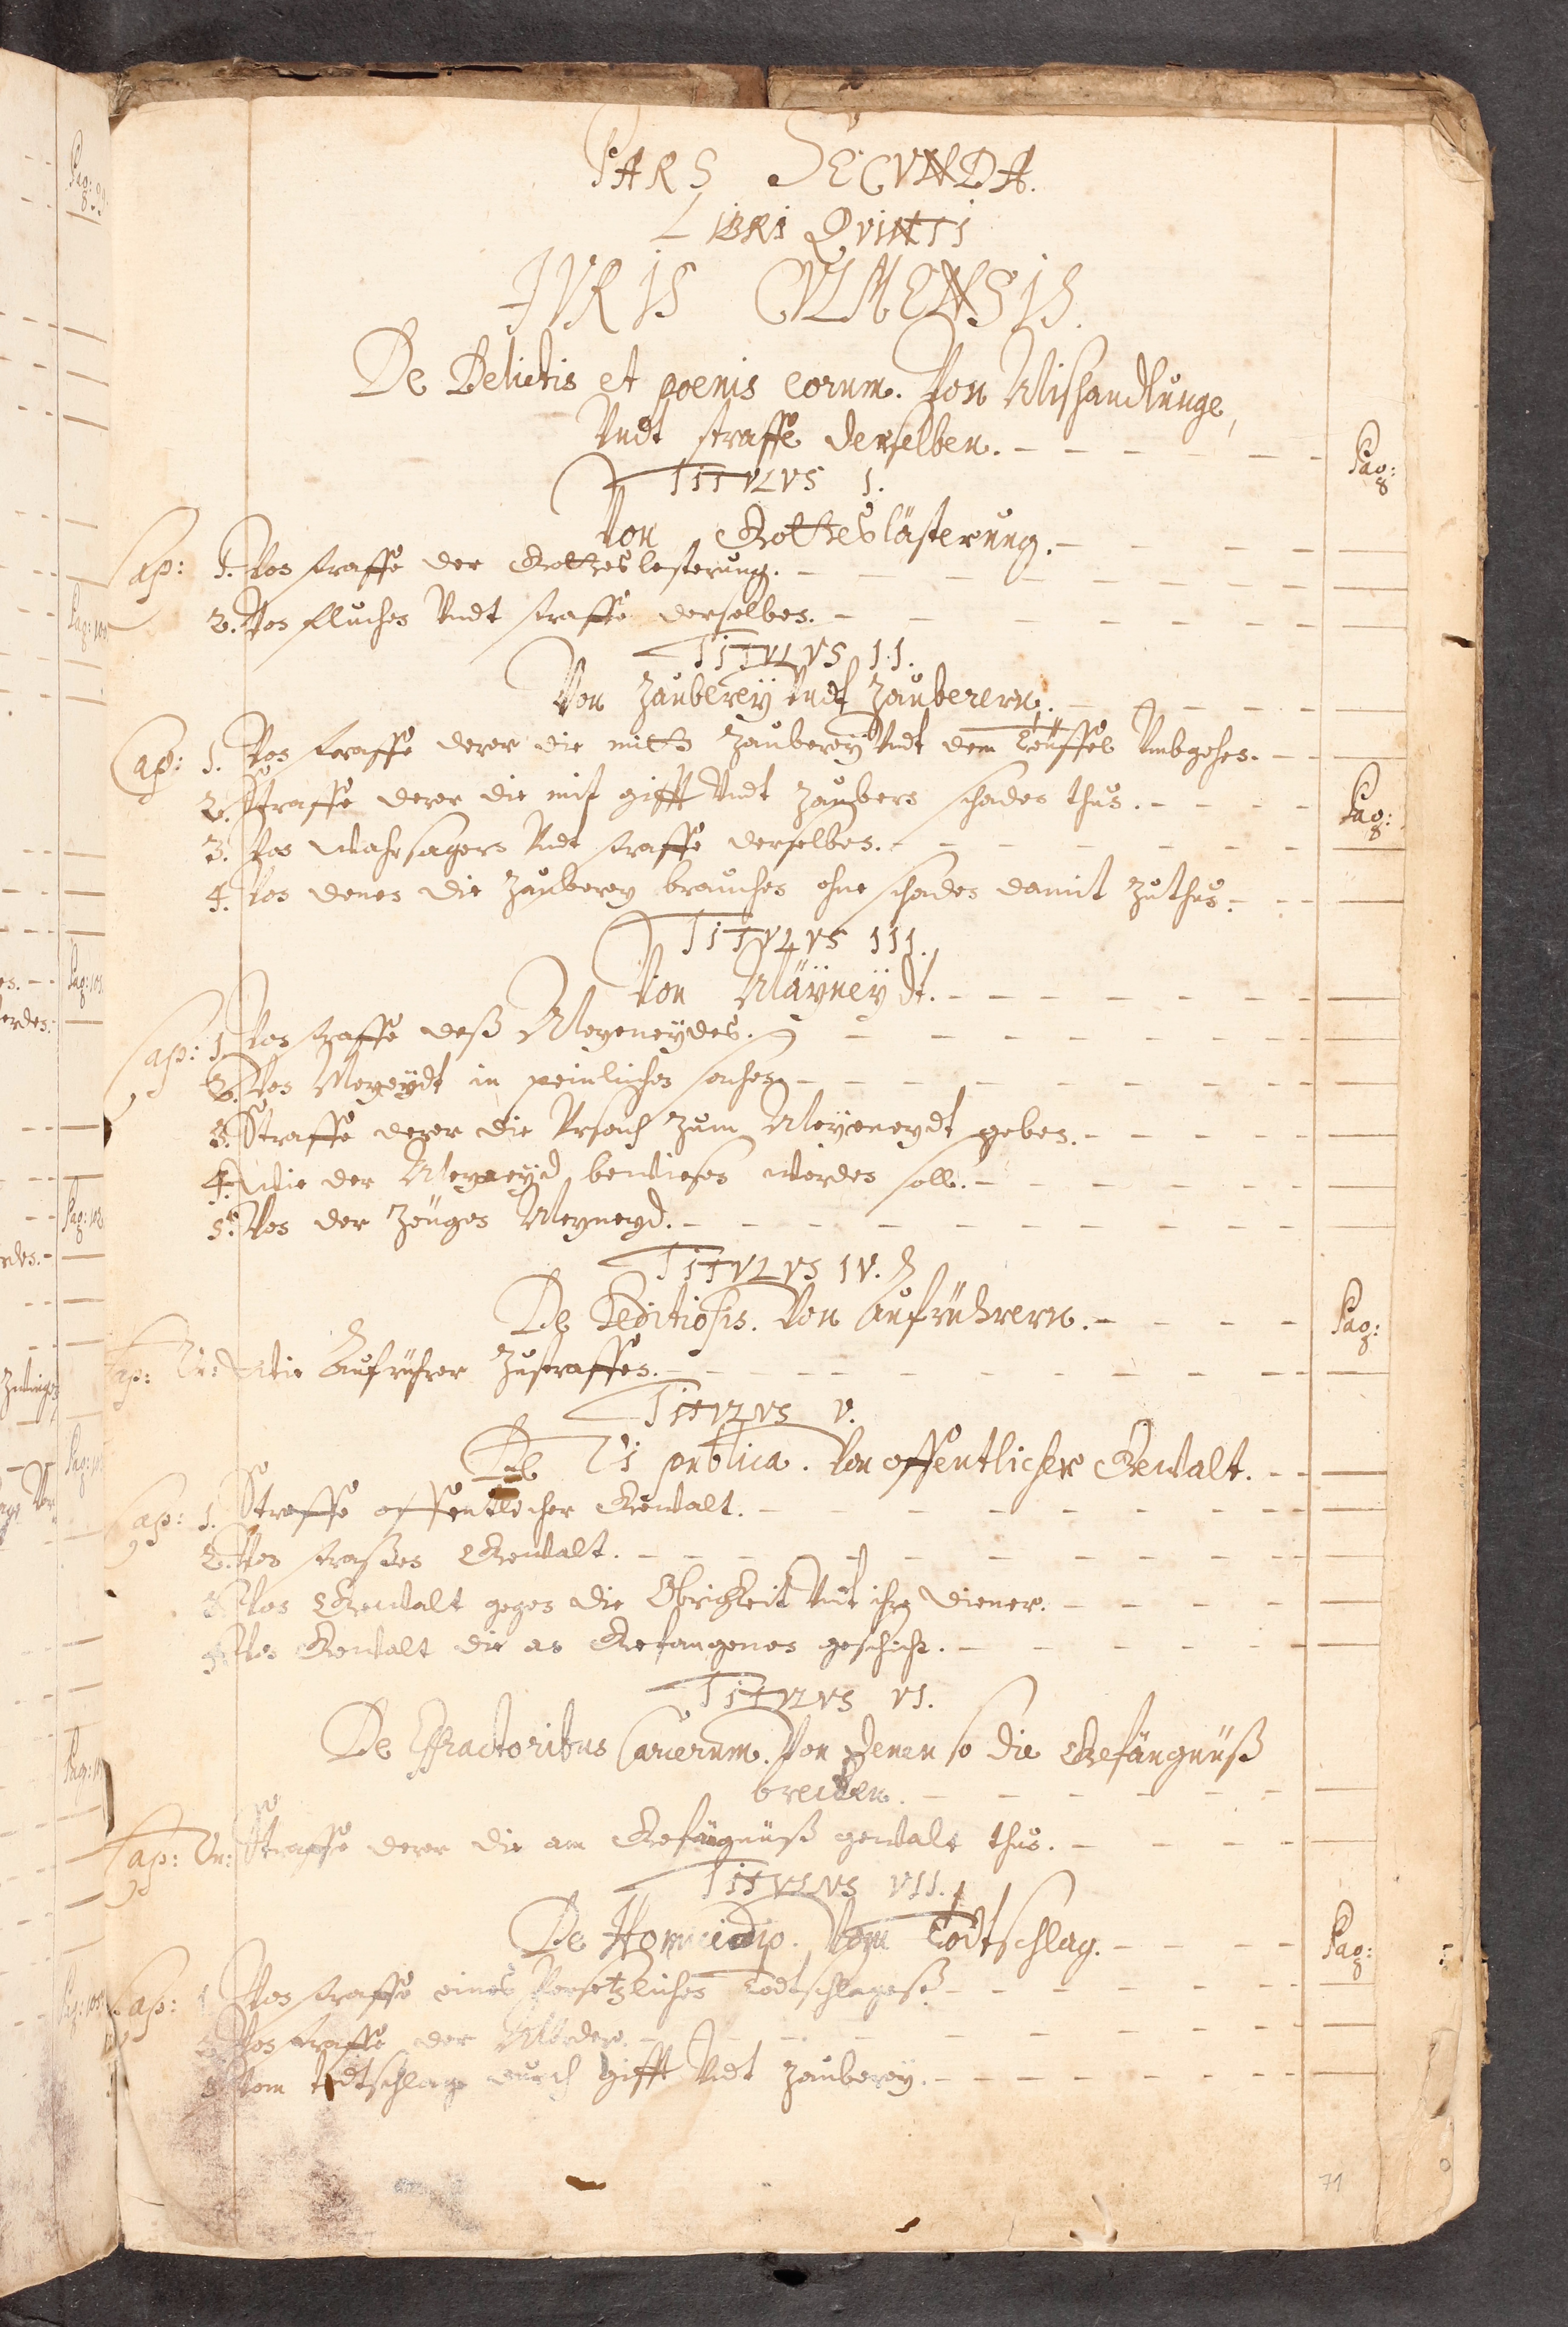 PARS SECVNDA.
LIBRI QVINTI
JVRIS CVLMENSIS.
De Delictis et poenis eorum. Von Mishandlunge,
Vndt straffe derselben. Pag:
TITVLVS 1.
Von Gotteslästerung.
Cap: 1. Von straffe der Gotteslesterung.
2. Von fluchen Vndt straffe derselben.
TITVLVS 11.
Von Zauberey Vndt Zauberern.
Cap: 1. Von straffe derer die mitt Zauberey Vndt dem Teuffel Vmbgehen.
2. Straffe derer die mit gifft Vndt Zaubern schaden thun. Pag:
3. Von Wahrsagern Vndt straffe derselben.
4. Von denen die Zauberey brauchen ohne schaden damit Zuthun.
TITVLVS 111.
Von Mäyneydt.
Cap: 1. Von straffe deß Meyneydes.
2. Von Meyeydt in peinlichen sachen.
3. Straffe derer die Vrsach Zum Meyeneydt geben.
4. Wie der Meyneyd bewiesen werden soll.
5. Von der Zeugen Meyneyd.
TITVLVS 1V.
De Seditiosis. Von Aufrührern. Pag:
Cap: Vn: Wie Aufrührer Zustraffen.
TITVLVS V.
De Vi publica. Von offentlicher Gewalt.
Cap: 1. Straffe offentlicher Gewalt.
2. Von straßen Gewalt.
3. Von Gewalt gegen die Obrigkeit Vnd ihre Diener.
4. Von Gewalt die an Gefangenen geschicht.
TITVLVS V1.
De Effractoribus Carcerum. Von denen so die Gefängnüß
brechen.
Cap: Vn: Straffe derer die am Gefängnüß gewalt thun.
TITVLVS V11.
De Homicidio. Vom Todtschlag. Pag:
Cap: 1. Von straffe eines Vorsetzlichen Todtschlages
2. Von straffe der Mörder.
3. Vom todtschlage durch gifft Vndt Zauberey.
71